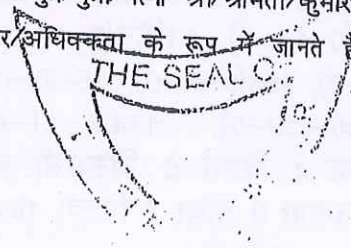 श्री/श्रीमती/कुमारी
र/अधिवक्ता के रूप में जानते है
THE SEAL O